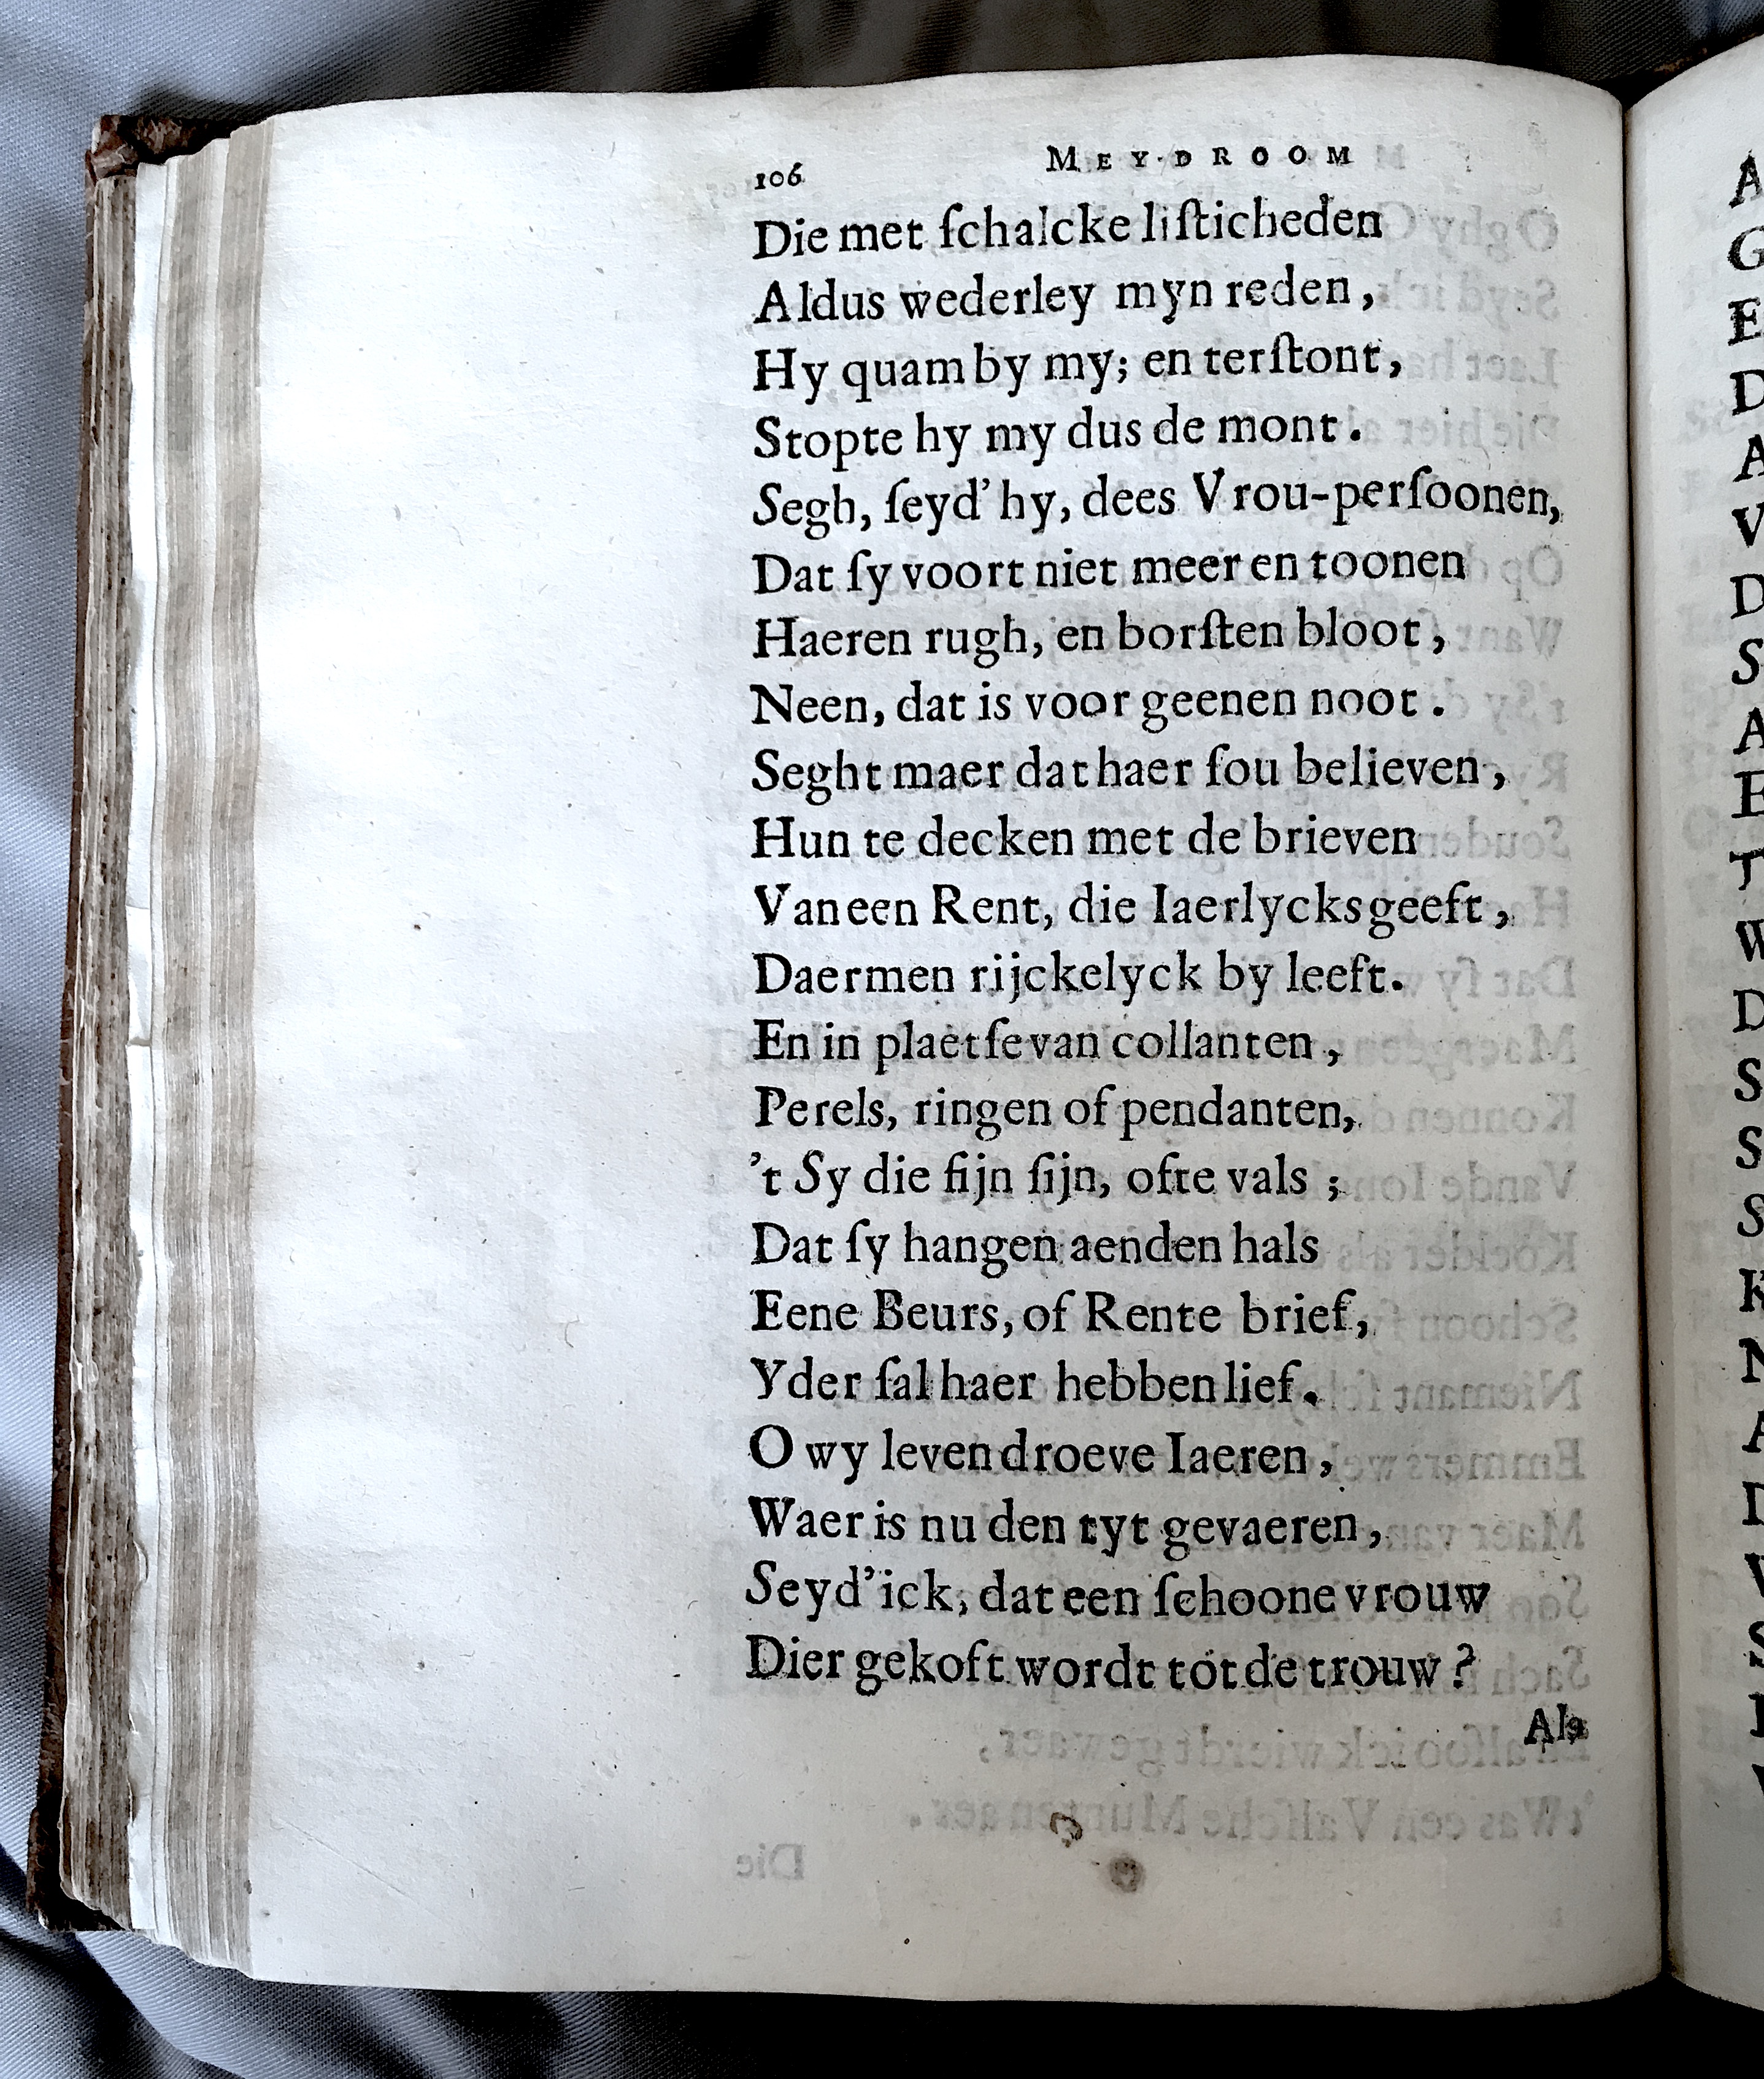 MEY-DROOM
106
Die met ſchalcke liſticheden
Aldus wederley myn reden,
Hy quam by my; en terſtont,
Stopte hy my dus de mont.
Segh, ſeyd' hy, dees Vrou-perſoonen,
Dat ſy voort niet meer en toonen
Haeren rugh, en borſten bloot,
Neen, dat is voor geenen noot.
Seght maer dat haer ſou believen,
Hun te decken met de brieven
Van een Rent, die Iaerlycks geeft,
Daermen rijckelyck by leeft.
En in plaetſe van collanten,
Perels, ringen of pendanten,
't Sy die fijn ſijn, ofte vals;
Dat ſy hangen aenden hals
Eene Beurs, of Rente brief,
Yder ſal haer hebben lief.
O wy leven droeve Iaeren,
Waer is nu den tyt gevaeren,
Seyd' ick, dat een ſchoone vrouw
Dier gekoft wordt tot de trouw?
Als